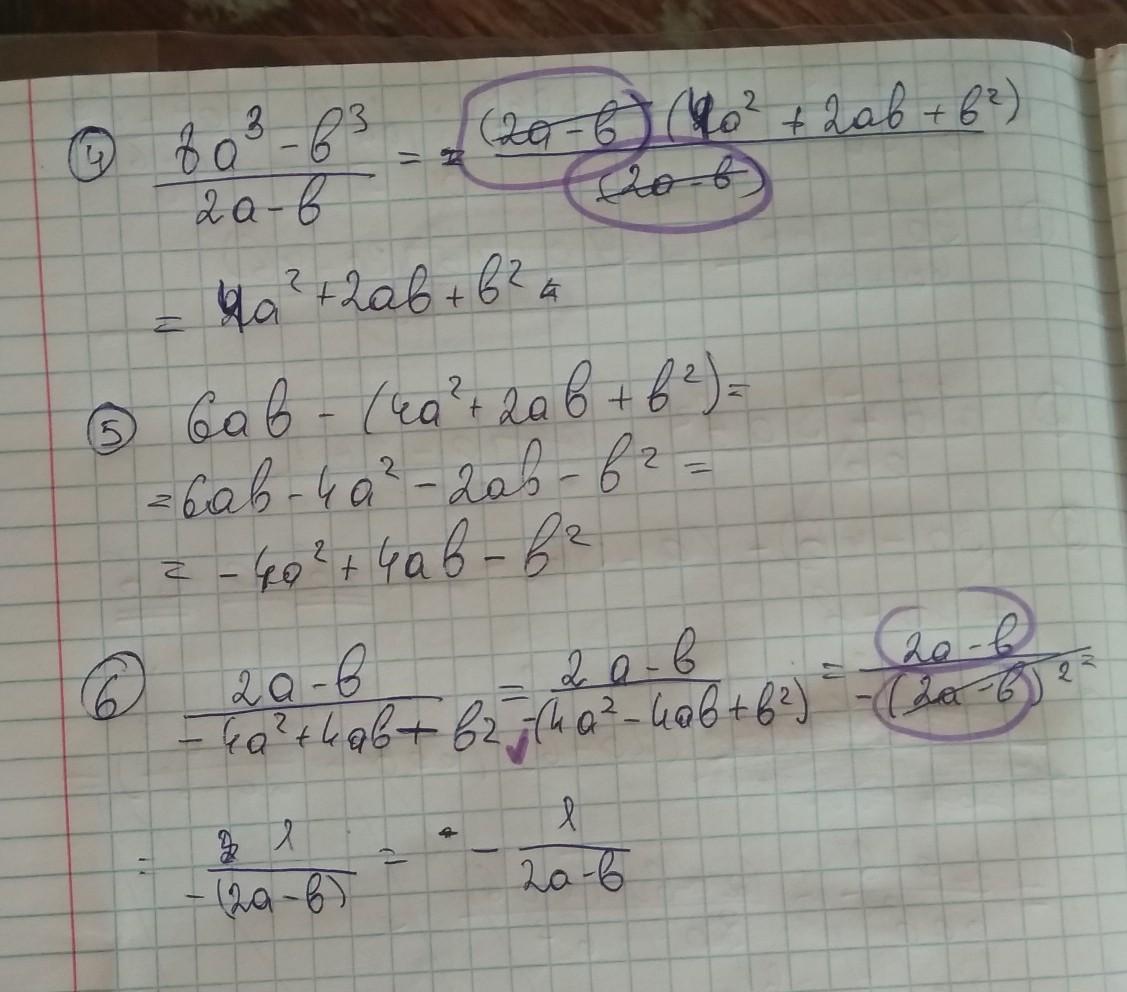 ④ (8a³ - b³)/(2a - b) = = ((2a - b)(4a² + 2ab + b²))/((2a - b))
= 4a² + 2ab + b²
⑤ 6ab - (4a² + 2ab + b²) =
= 6ab - 4a² - 2ab - b² =
= - 4a² + 4ab - b²
⑥ (2a - b)/(- 4a² + 4ab + b2) = (2a - b)/(-(4a² - 4ab + b²)) = (2a - b)/(-(2a - b)²) =
= 1/(-(2a - b)) = - 1/(2a - b)